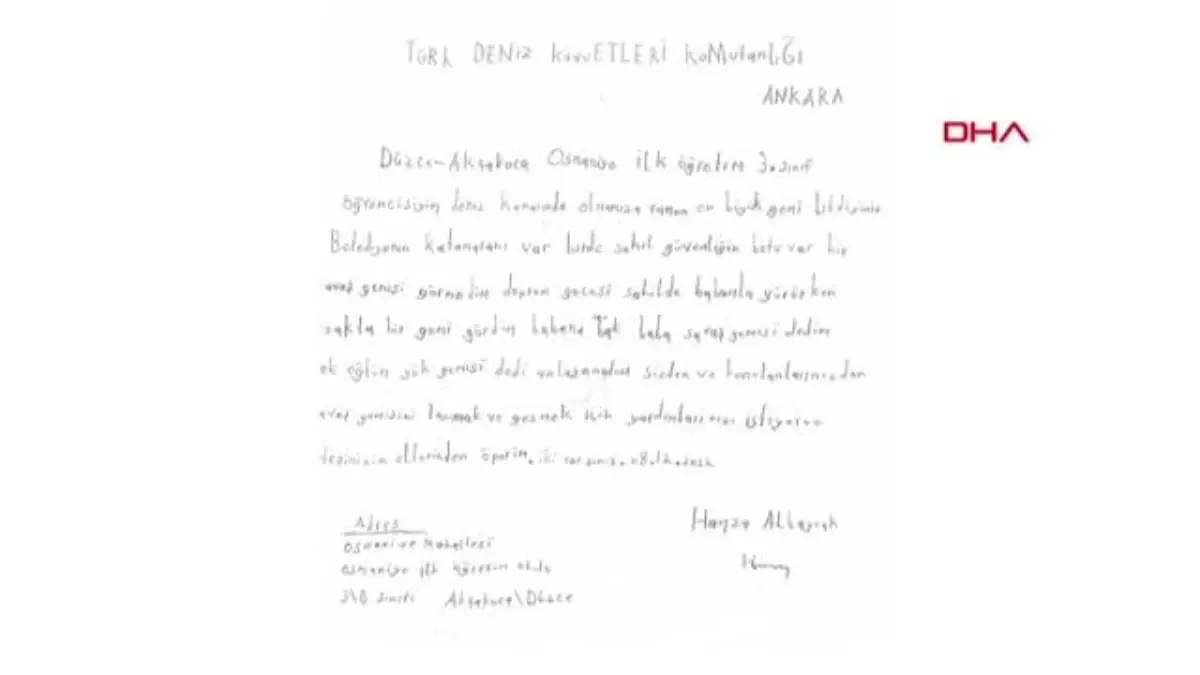 TÜRK DENiz kuvvETLERİ koMutanLIĞI
ANKARA
DHA
Düzce-Akçakoca Osmaniye İLK öğretim 3.sınıf
öğrencisiyim deniz kenarında olmamıza rağmen en büyük gemi bildiğimiz
Belediyenin var birde sahil güvenliğin botu var bir
avaş gemisi görmedim deprem gecesi sahilde babamla yürürken
zakta bir gemi gördüm babama bak baba savaş gemisi dedim
ok oğlum yük gemisi dedi sizden ve komutanlarımızdan
avaş gemisini tanımak ve gezmek için yardımlarınızı istiyorum
ellerinden öperim. iyi varsınız.
Adres
Hamza Albayrak
osmaniye mahallesi
osmaniye ilk öğretim okulu
sınıfı Akçakoca\Düzce